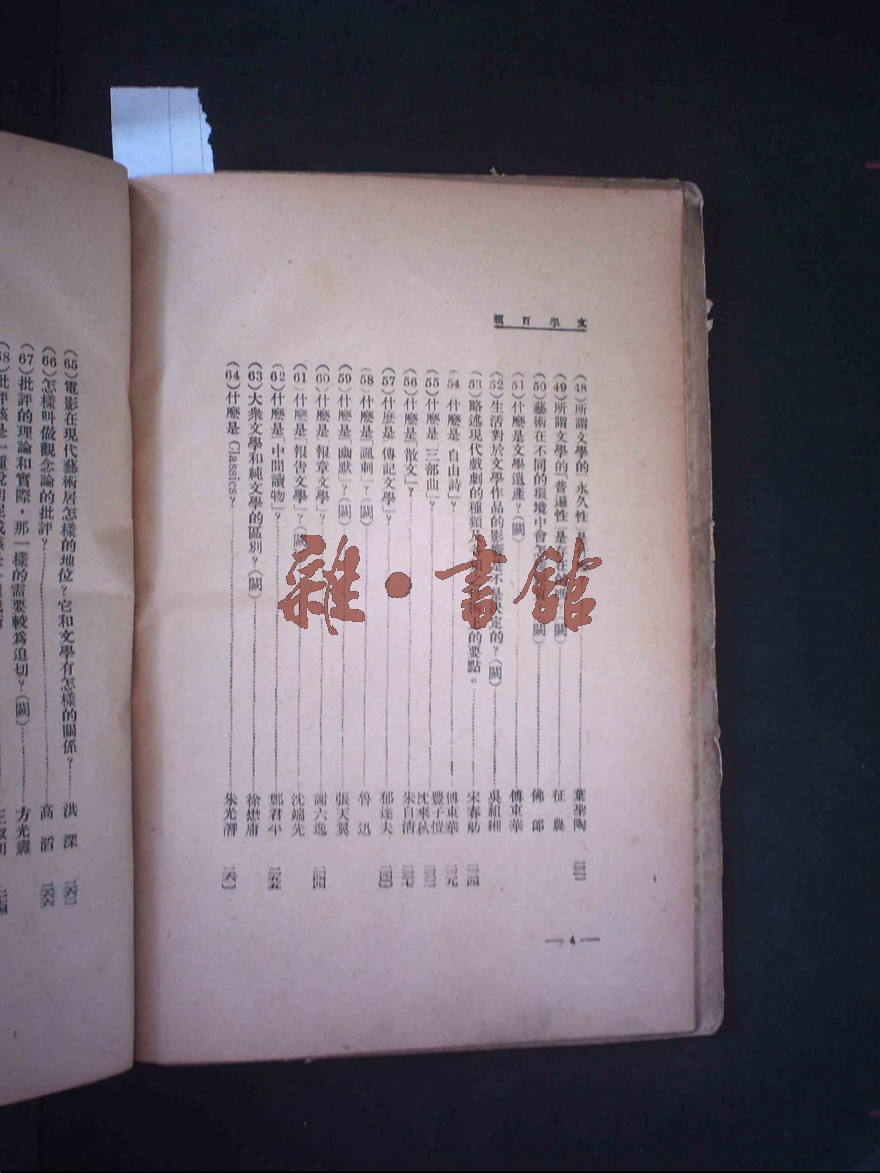 文學百題
(48)所謂文學的「永久性」是 葉聖陶 二二一
(49)所謂文學的「普遍性」是存在的 (闕) 征農
(50)藝術在不同的環境中會 (闕) 佛郎
(51)什麼是文學遺產?(闕) 傅東華
(52)生活對於文學作品的影響是不是決定的?(闕) 吳組緗
(53)略述現代戲劇的種類及 的要點。 宋春舫 二二四
(54)什麼是「自由詩」? 傅東華 二二九
(55)什麼是「三部曲」? 豐子愷 沈來秋 二三二
(56)什麼是「散文」? 朱自清 二三七
(57)什麼是「傳記文學」? 郁達夫 二四〇
(58)什麼是「諷刺」?(闕) 魯迅
(59)什麼是「幽默」?(闕) 張天翼
(60)什麼是「報章文學」? 謝六逸 二四四
(61)什麼是「報告文學」?(闕) 沈端先
(62)什麼是「中間讀物」? 鄭君平 二五五
(63)大衆文學和純文學的區別?(闕) 徐懋庸
(64)什麼是 Classics? 朱光潛 二六〇
— 4 —
(65)電影在現代藝術居怎樣的地位?它和文學有怎樣的關係? 洪深 二六二
(66)怎樣叫做觀念論的批評? 高滔 二六六
(67)批評的理論和實際,那一樣的需要較爲迫切?(闕) 方光燾
雜·書館